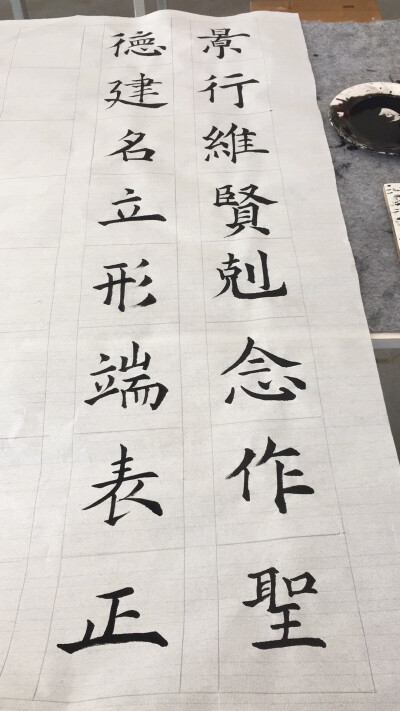 景行維賢剋念作聖
德建名立形端表正